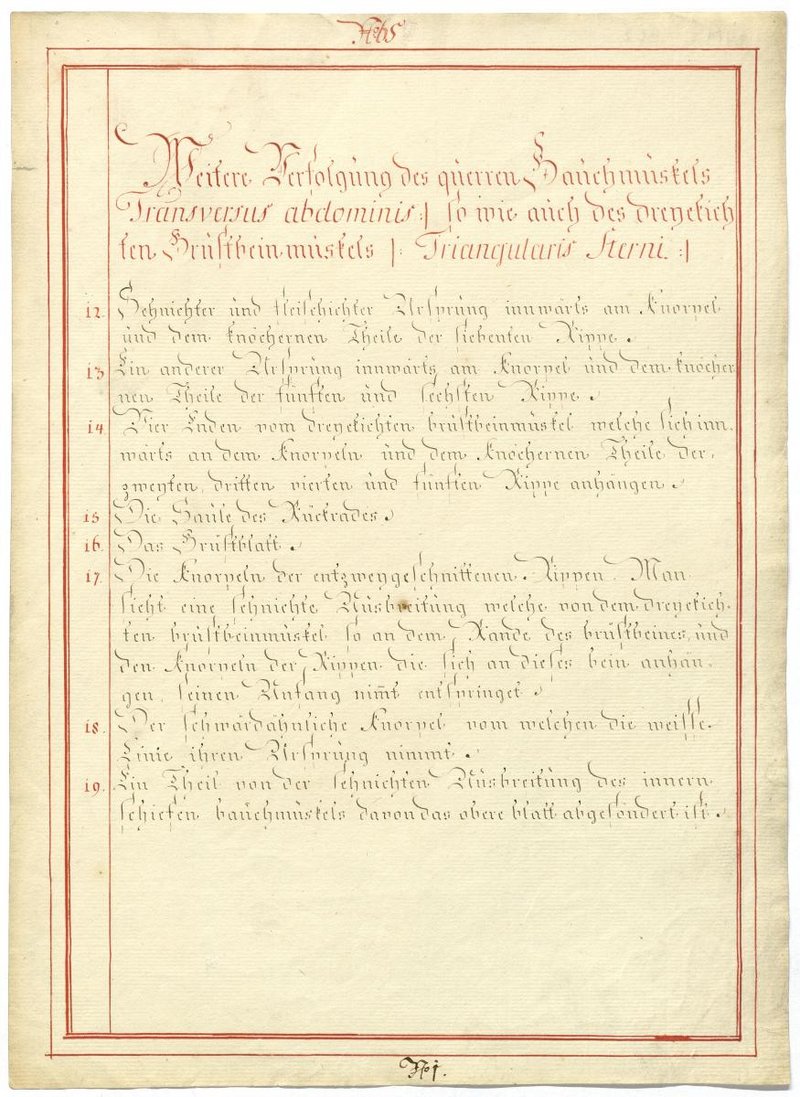 No 65
Weitere Verfolgung des querren Bauchmuskels
Transversus abdominis :| so wie auch des dreyekich
ten Brustbeinmuskels |: Triangularis Sterni. :|
12. Sehnichter und fleischichter Ursprung innwärts am Knorpel
und dem knöchernen Theile der siebenten Rippe.
13 Ein anderer Ursprung innwärts am Knorpel und dem knöcher
nen Theile der fünften und sechsten Rippe.
14 Vier Enden vom dreyekichten brustbeinmuskel welche sich inn-
wärts an dem Knorpeln und dem Knöchernen Theile der
zweyten, dritten vierten und fünften Rippe anhängen.
15 Die Saule des Rückrades.
16. Das Brustblatt.
17. Die Knorpeln der entzweygeschnittenen Rippen. Man
sieht eine sehnichte Ausbreitung welche von dem dreyekich-
ten brustbeinmuskel so an dem Rande des brustbeines, und
den Knorpeln der Rippen die sich an dieses bein anhän-
gen, seinen Anfang nim̄t entspringet.
18. Der schwardähnliche Knorpel vom welchen die weisse
Linie ihren Ursprung nimmt.
19. Ein Theil von der sehnichten Ausbreitung des innern
schiefen bauchmuskels davon das obere blatt abgesondert ist.
No 1.